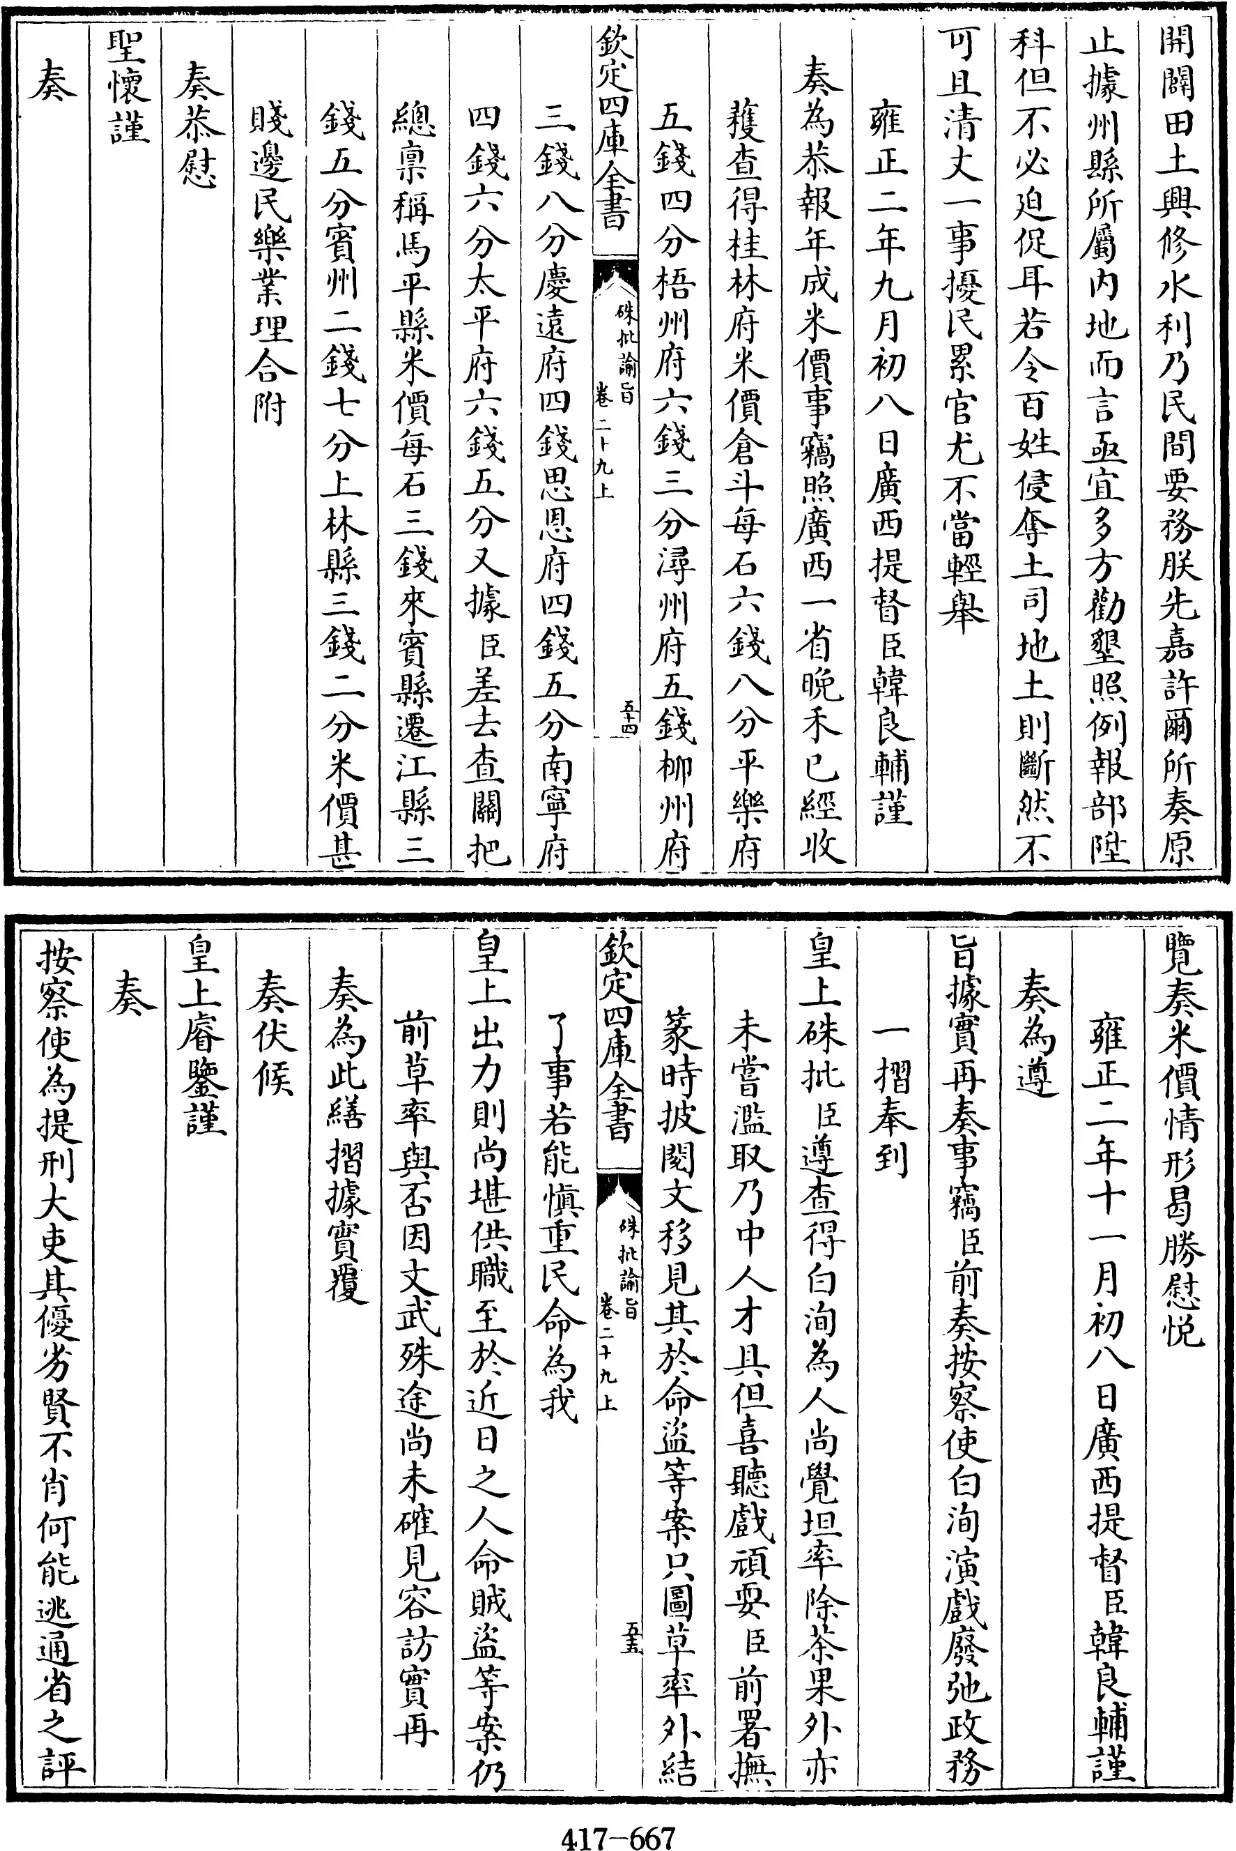 開闢田土興修水利乃民間要務朕先嘉許爾所奏原
止據州縣所屬内地而言亟宜多方勸墾照例報部陞
科但不必廹促耳若令百姓侵奪土司地土則斷然不
可且清丈一事擾民累官尤不當輕舉
雍正二年九月初八日廣西提督臣韓良輔謹
奏為恭報年成米價事竊照廣西一省晚禾已經收
穫查得桂林府米價倉斗每石六錢八分平樂府
五錢四分梧州府六錢三分潯州府五錢柳州府
欽定四庫全書
硃批諭旨
卷二十九上
五十四
三錢八分慶遠府四錢思恩府四錢五分南寧府
四錢六分太平府六錢五分又據臣差去查關把
總稟稱馬平縣米價每石三錢來賓縣遷江縣三
錢五分賓州二錢七分上林縣三錢二分米價甚
賤邊民樂業理合附
奏恭慰
聖懷謹
奏
覽奏米價情形曷勝慰悅
雍正二年十一月初八日廣西提督臣韓良輔謹
奏為遵
旨據實再奏事竊臣前奏按察使白洵演戲廢弛政務
一摺奉到
皇上硃批臣遵查得白洵為人尚覺坦率除茶果外亦
未嘗濫取乃中人才具但喜聽戲頑耍臣前署撫
篆時披閱文移見其於命盜等案只圖草率外結
欽定四庫全書
硃批諭旨
卷二十九上
五十五
了事若能慎重民命為我
皇上出力則尚堪供職至於近日之人命賊盜等案仍
前草率與否因文武殊途尚未確見容訪實再
奏為此繕摺據實覆
奏伏候
皇上睿鑒謹
奏
按察使為提刑大吏其優劣賢不肖何能逃通省之評
417-667